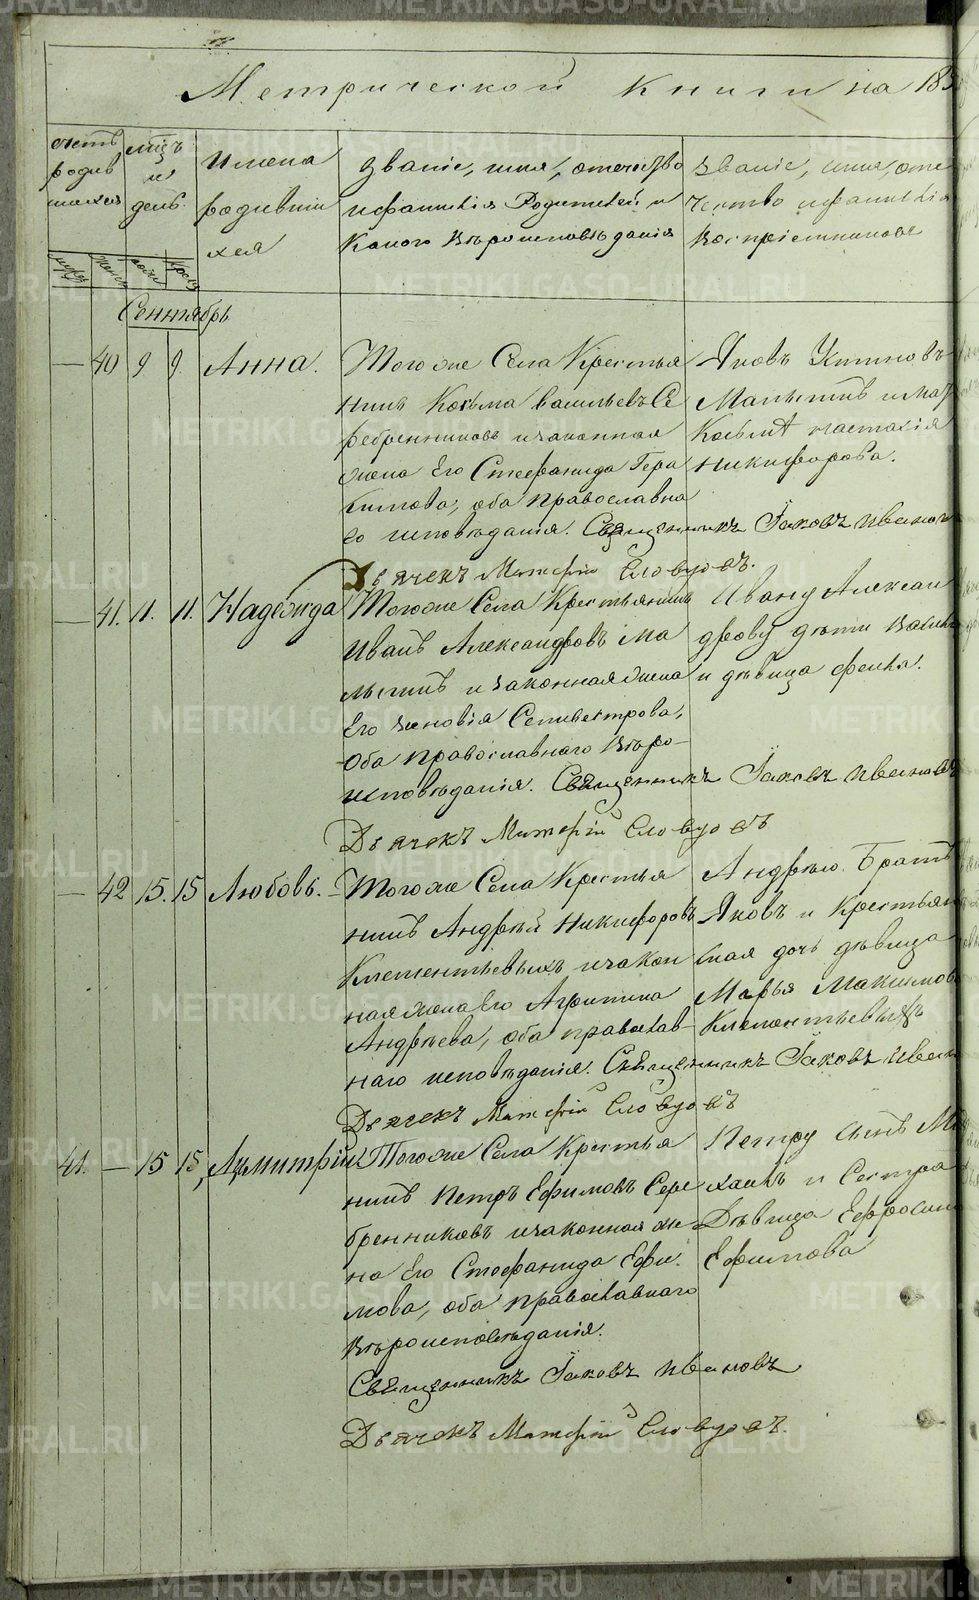 Метрической книги на 18
счетъ родив шихся
мцъ и день
Имена родивших хся
Званіе, имя, отчество и фамилія Родителей и какого вѣроисповѣданія
Званіе, имя, отечество и фамилія воспріемниковъ
Сентябрь
— 40 9 9 Анна.
Тогоже Села Крестья
нинъ Косьма васильевъ Се
ребренниковъ изаконная
жена Его Стефанида Гера
симова, оба православна
го исповѣданія. Священникъ Іаковъ Ивановъ
Дьячекъ Словцовъ.
Яковъ
Малыгинъ
Косьмѣ Настасія
Никифорова.
— 41. 11. 11. Надежда
Тогоже Села Крестьянинъ
Иванъ Александровъ Ма
лыгинъ и законная жена
Его Зиновія Селивестрова,
Оба Православнаго вѣро-
исповѣданія. Священникъ Іаковъ Ивановъ
Дьячекъ Словцовъ
Ивану Алексан
дрову дѣти
и дѣвица
— 42 15. 15 Любовь.
Тогоже Села Крестья
нинъ Андрѣй Никифоровъ
Клементьевыхъ изакон
ная жена Его Агрипина
Андрѣева, оба православ-
наго исповѣданія. Священникъ Іаковъ Ивановъ
Дьячекъ Словцовъ
Андрѣю Братъ
Яковъ и Крестьян
ская дочь дѣвица
Марья Макимов
Клементьевыхъ
41. — 15 15, Димитрій
Тогоже Села Крестья
нинъ Петръ Ефимовъ Сере
бренниковъ изаконная же
на Его Стефанида Ефи.
мова, оба православнаго
вѣроисповѣданія.
Священникъ Іаковъ Ивановъ
Дьячекъ Словцовъ.
Петру сынъ Ми
хаилъ и Сестра
Дѣвица Ефросинія
Ефимова
METRIKI.GASO-URAL.RU